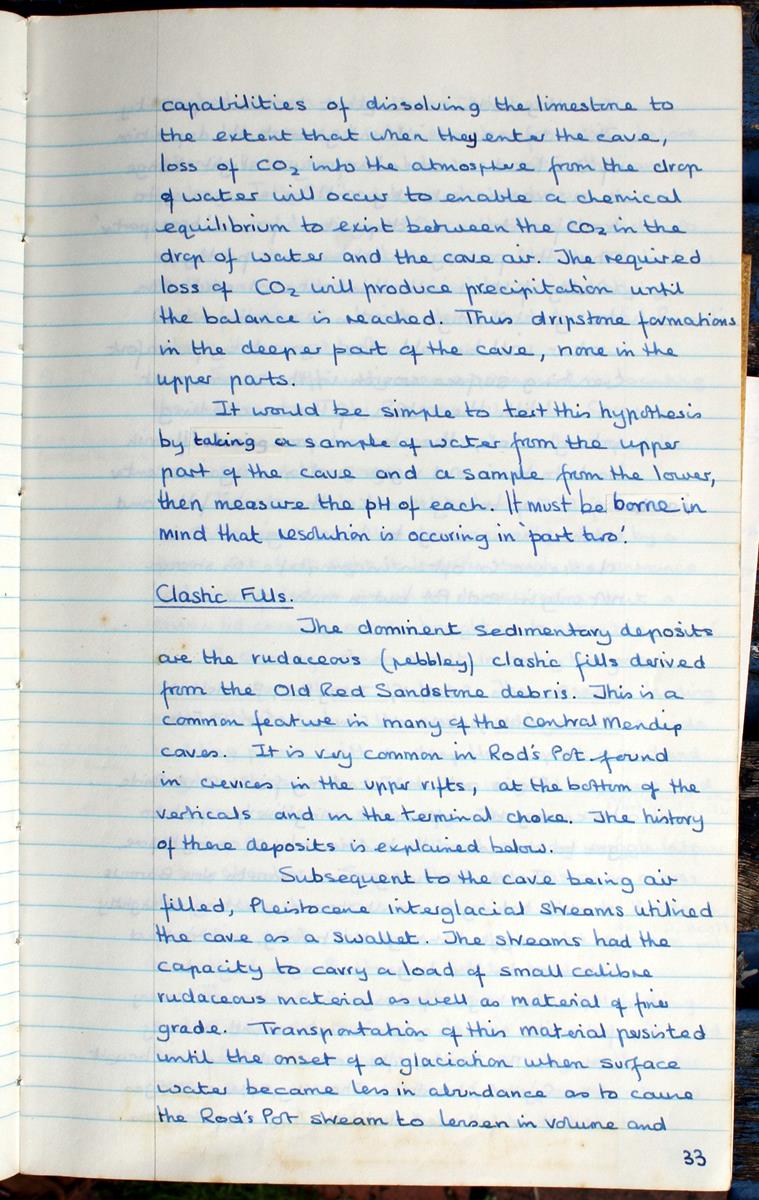 capabilities of dissolving the limestone to
the extent that when they enter the cave,
loss of CO2 into the atmosphere from the drop
of water will occur to enable a chemical
equilibrium to exist between the CO2 in the
drop of water and the cave air. The required
loss of CO2 will produce precipitation until
the balance is reached. Thus dripstone formations
in the deeper part of the cave, none in the
upper parts.
It would be simple to test this hypothesis
by taking a sample of water from the upper
part of the cave and a sample from the lower,
then measure the pH of each. It must be borne in
mind that resolution is occuring in 'part two'.
Clastic Fills.
The dominent sedimentary deposits
are the rudaceous (pebbley) clastic fills derived
from the Old Red Sandstone debris. This is a
common feature in many of the central Mendip
caves. It is very common in Rod's Pot found
in crevices in the upper rifts, at the bottom of the
verticals and in the terminal choke. The history
of these deposits is explained below.
Subsequent to the cave being air
filled, Pleistocene interglacial streams utilised
the cave as a swallet. The streams had the
capacity to carry a load of small calibre
rudaceous material as well as material of fine
grade. Transportation of this material persisted
until the onset of a glaciation when surface
water became less in abundance as to cause
the Rod's Pot stream to lessen in volume and
33